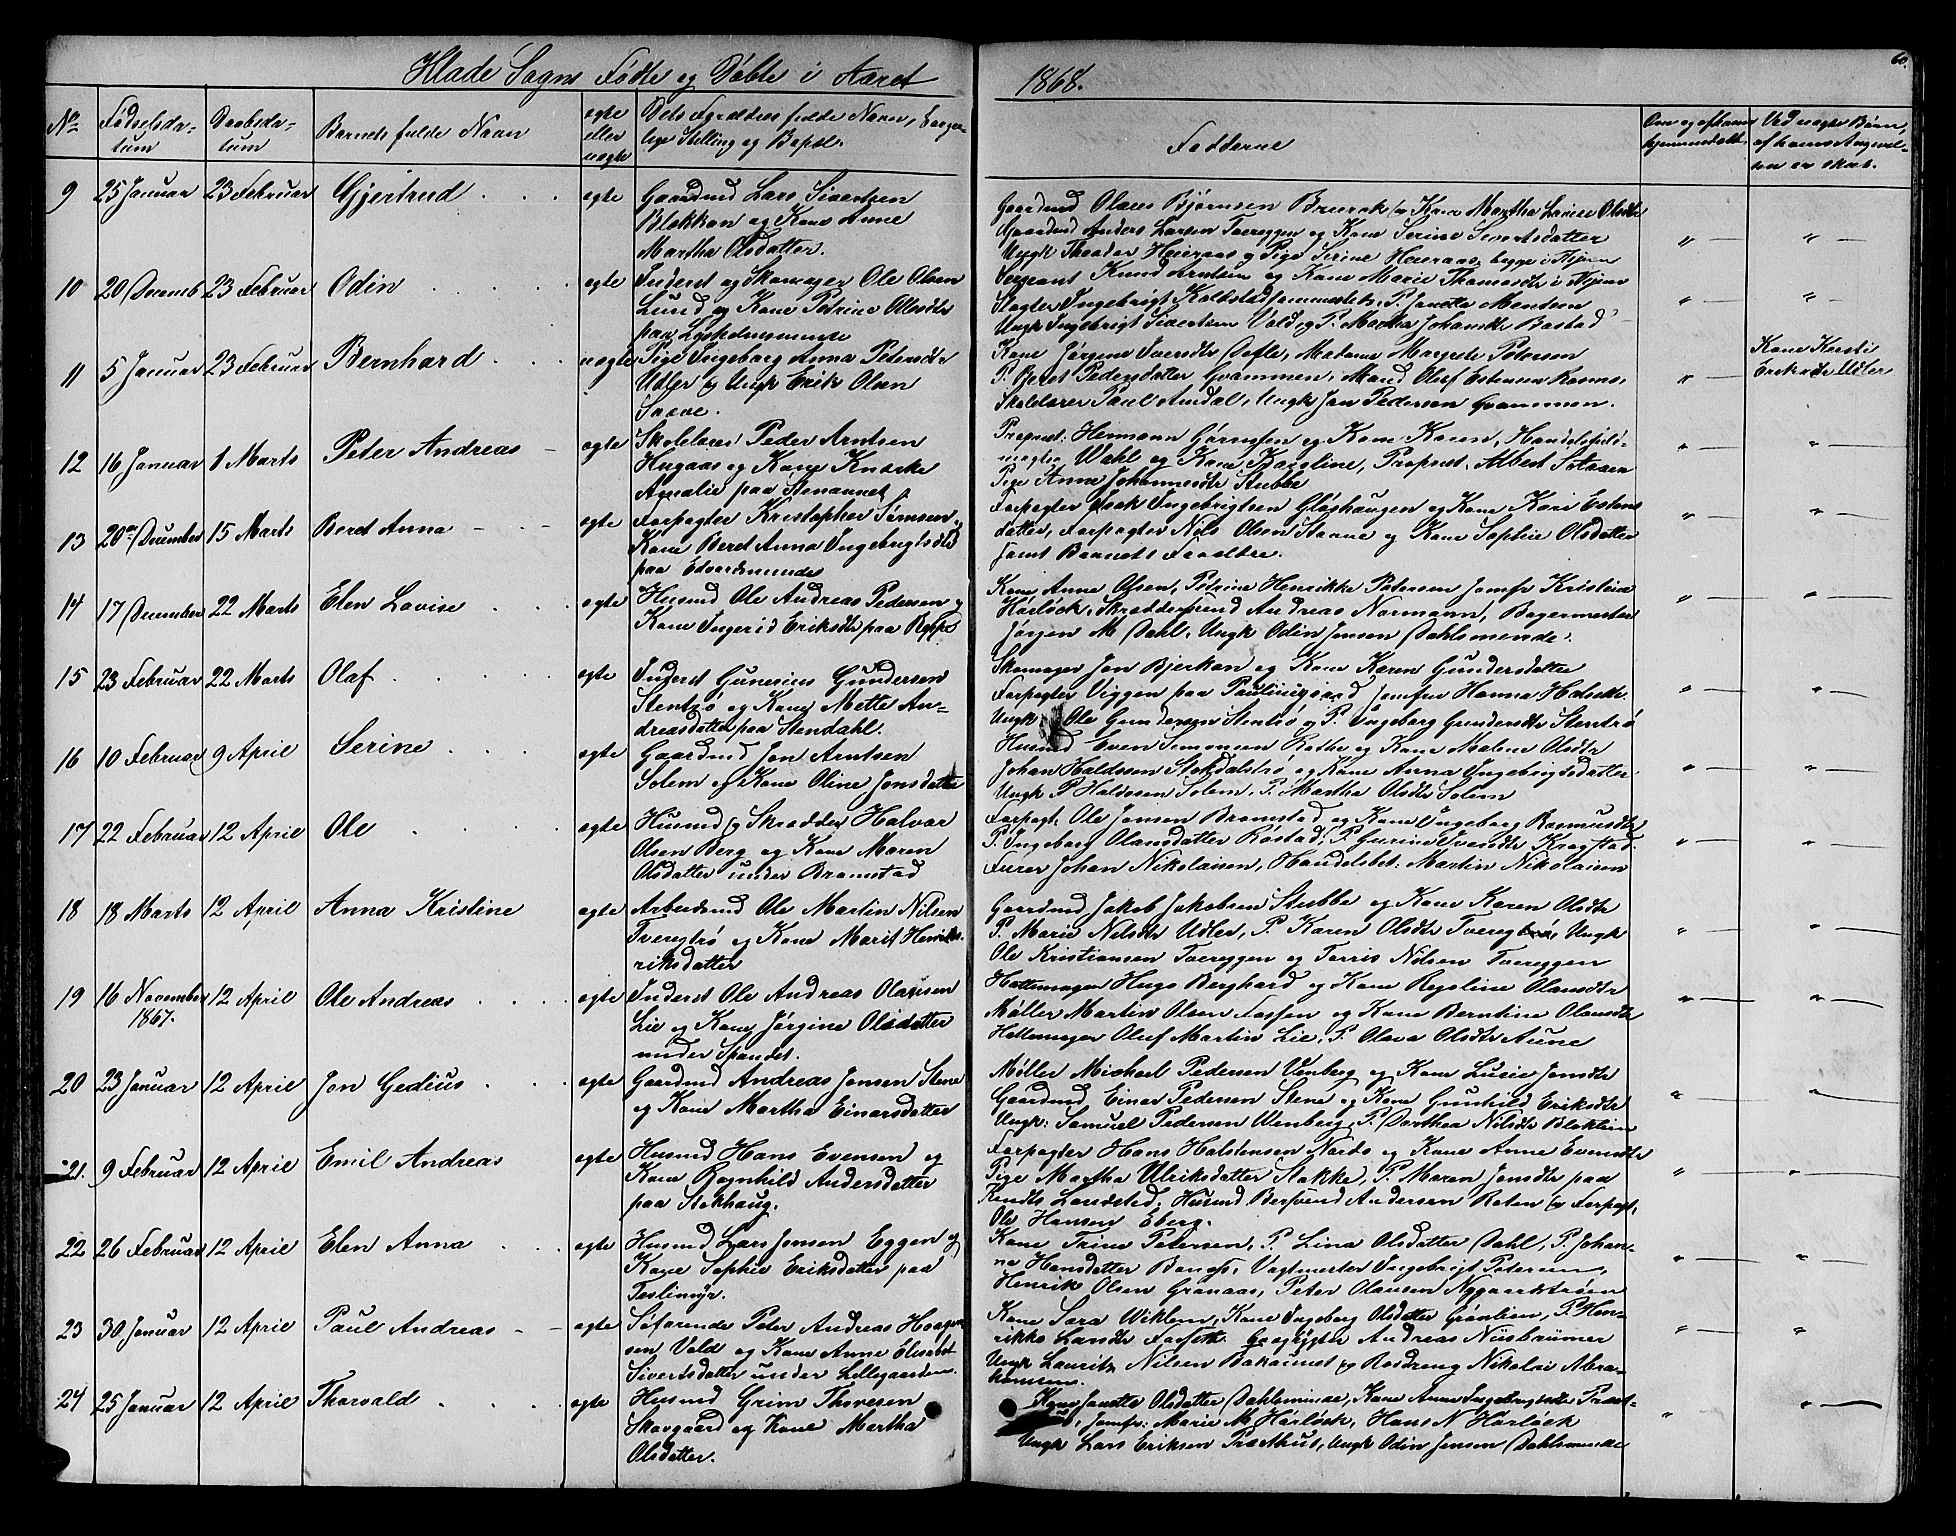 Hlade Sogns Fødte og Døbte i Aaret 1868.
60.
No
Fødselsda-
tum
Daabsda-
tum
Barnets fulde Navn
ægte
eller
uægte
Dets Forældres fulde Navn, Borger-
lige Stilling og Bopæl.
Fadderne
Om og af hvem
hjemmedøbt
Ved uægte Børn,
af hvems Angivel-
sen er skeet.
9 25 Januar 23 Februar Gjertrud ægte
Gaardmd Lars Sivertsen
Blekkan og Kone Anne
Martha Olsdatter.
Gaardmd Olaus Bjørnsen Bruråk og Kone Martha Lovise Olsdtr
Gaardmd Anders Larsen Tvereggen og Kone Serine Sivertsdatter
Ungk Theodor Heieraas og Pige Serine Heieraas, begge i Thjem
10 20 Decemb 23 Februar Odin ægte
Inderst og Skomager Ole Olsen
Lund og Kone Petrine Olesdtr
paa
Sergeant Knud Arntsen og Kone Marie Thomasdtr i Thjem
Slagter Ingebrigt Kolstad P. Janetta Monsen
Ungk Ingebrigt Sivertsen Vold, og P. Martha Johansdtr Bostad
11 5 Januar 23 Februar Bernhard uægte
Pige Ingeborg Anna Petersdtr
Udler og Ungk Erik Olsen
Saxve.
Kone Jørgine Iversdtr Tofte, Madame Margrete Petersen
P. Beret Pedersdatter Gvammen, Mand Oluf Estensen Rosmo,
Skolelærer Paul Aundal, Ungk Jon Pedersen Gvammen.
Kone Kersti
Eriksdtr Udler
12 16 Januar 1 Marts Peter Andreas ægte
Skolelærer Peder Arntsen
Hugaas og Kone
Amalie paa Stenannet
Propriet. Hermann Garmsen og Kone Karen, Handelsfuld-
mægtig Wahl og Kone Karoline, Propriet. Albert Solaaen
Pige Anne Johannesdtr Stubbe
13 20de December 15 Marts Beret Anna ægte
Forpagter Kristopher Simonsen
Kone Beret Anna Ingebrigtsdtr
paa Edvardsminde
Forpagter Isak Ingebrigtsen Gløshaugen og Kone Kari Estens
datter, Forpagter Nils Olsen Stavne og Kone Sophie Olsdatter
samt Barnets Forældre.
14 17 December 22 Marts Elen Lovise ægte
Husmd Ole Andreas Pedersen og
Kone Ingerid Eriksdtr paa Reppe
Kone Anne Olsen, Petrine Henrikke Petersen Jomfr Kristine
Hårløck, Skræddersvend Andreas Normann, Bagermester
Jørgen M Dahl, Ungk Odin Jensen Dahlsminde.
15 23 Februar 22 Marts Olaf ægte
Inderst Gunerius Gundersen
Stentrø og Kone Mette An-
dreasdatter paa Stendahl.
Skomager Jon Bjerkan og Kone Karen Gundersdatter
Forpagter Viggen paa Paulinegaard Jomfru Hanna Halseth
Ungk Ole Gundersen Stentrø og P. Ingeborg Gundersdtr Stentrø
16 10 Februar 9 April Serine ægte
Gaardmd Jon Arntsen
Solem og Kone Oline Jonsdatter
Husmd Even Simonsen Rathe og Kone Malene Olsdtr
Johan Haldosen Stokdalstrø og Kone Anna Ingebrigtsdatter
Ungk P Haldosen Solem, P. Martha Olsdtr Solem
17 22 Februar 12 April Ole ægte
Husmd og Skrædder Halvor
Olsen Berg og Kone Maren
Olsdatter under Bromstad
Forpagt. Ole Jensen Bromstad og Kone Ingeborg Rasmusdtr
P. Ingeborg Olausdatter Røstad, P. Gurine Iversdtr Krogstad
Furer Johan Nikolaisen, Handelsbet. Martin Nikolaisen
18 18 Marts 12 April Anna Kristine ægte
Arbeidsmd Ole Martin Nilsen
Tveregtrø og Kone Marit Henrik-
riksdatter
Gaardmd Jakob Jakobsen Stubbe og Kone Karen Olsdtr
P. Marie Nilsdtr Udler, P. Karen Olsdtr Tveregtrø, Ungk
Ole Kristiansen Tvereggen og Terris Nilsen Tvereggen
19 16 November
1867. 12 April Ole Andreas ægte
Inderst Ole Andreas Olausen
Lie og Kone Jørgine Olsdatter
under Spandet.
Hattemager Hugo Berghard og Kone Regeline Olausdtr
Møller Martin Olsen Fossen og Kone Berntine Olausdtr
Hattemager Oluf Martin Lie, P. Olava Olsdtr Aune
20 23 Januar 12 April Jon Gedius ægte
Gaardmd Andreas Jonsen Stene
og Kone Martha Einarsdatter
Møller Michael Pedersen Venberg og Kone Lusie Jonsdtr
Gaardmd Einar Pedersen Stene og Kone Gunhild Eriksdtr
Ungk: Samuel Pedersen Wenberg, P. Dorthea Nilsdtr Blekken
21. 9 Februar 12 April Emil Andreas ægte
Husmd Hans Evensen og
Kone Ragnhild Andersdatter
paa Stokhaug.
Forpagter Hans Halstensen Nardo og Kone Anne Evensdtr
Pige Martha Ulriksdatter Stokke, P. Maren Jonsdtr paa
Rendts Landsted, Husmd Bersvend Andersen Roten og Forpagt,
Ole Hansen Eberg.
22 26 Februar 12 April Elen Anna ægte
Husmd Lars Jonsen Eggen og
Kone Sophie Eriksdatter paa
Teslimyr.
Kone Trine Petersen, P. Lina Olsdatter Dahl, P. Johan-
na Hansdatter Vagtmester Ingebrigt Petersen,
Henrik Olsen Granaas, Peter Olausen Nygaardstrøen
23 30 Januar 12 April Paul Andreas ægte
Søfarende Peter Andreas Haagen-
sen Vold og Kone Anne Elisabet
Sivertsdatter under Lillegaarden.
Kone Sara Wiklem, Kone Ingeborg Olsdatter Grønlien, P. Hen-
rikke Lundtr Andreas Nüsbaümer
Ungk Lauritz Nilsen Bakaunet og Rosdreng Nikolai Abra-
hamsen.
24 25 Januar 12 April Thorvald ægte
Husmd Grim Thoresen
Skovgaard og Kone Martha
Olsdatter.
Kone Janette Olsdatter Dahlsminde, Kone Anne Ingebrigtsdtr Præst-
hus, Jomfr: Marie M. Hårløck, Hans N Hårløck
Ungk Lars Eriksen Præsthus, Ungk Odin Jensen Dahlsminde